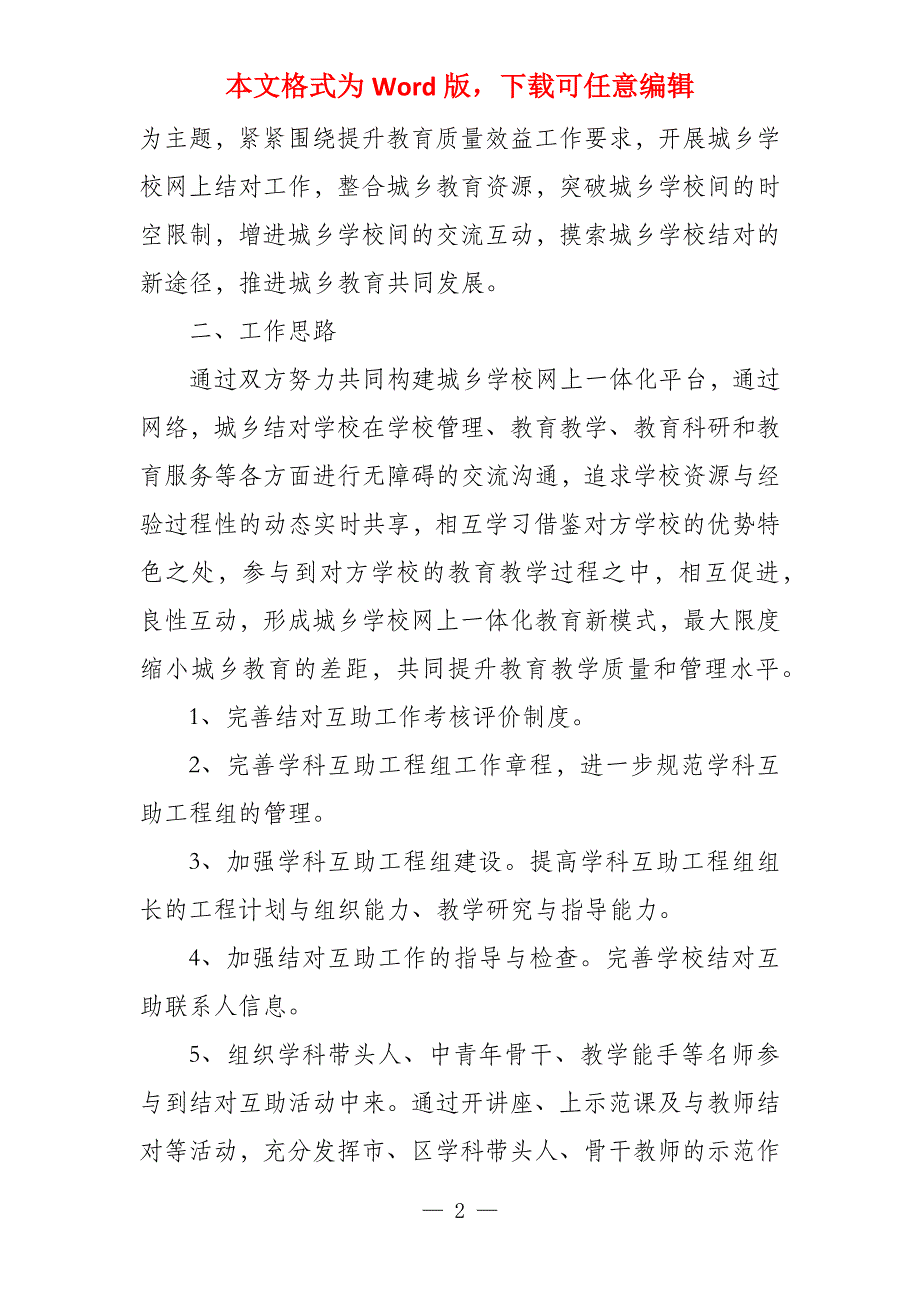 本文格式为 Word 版，下载可任意编辑
为主题，紧紧围绕提升教育质量效益工作要求，开展城乡学
校网上结对工作，整合城乡教育资源，突破城乡学校间的时
空限制，增进城乡学校间的交流互动，摸索城乡学校结对的
新途径，推进城乡教育共同发展。
二、工作思路
通过双方努力共同构建城乡学校网上一体化平台，通过
网络，城乡结对学校在学校管理、教育教学、教育科研和教
育服务等各方面进行无障碍的交流沟通，追求学校资源与经
验过程性的动态实时共享，相互学习借鉴对方学校的优势特
色之处，参与到对方学校的教育教学过程之中，相互促进，
良性互动，形成城乡学校网上一体化教育新模式，最大限度
缩小城乡教育的差距，共同提升教育教学质量和管理水平。
1、完善结对互助工作考核评价制度。
2、完善学科互助工程组工作章程，进一步规范学科互
助工程组的管理。
3、加强学科互助工程组建设。提高学科互助工程组组
长的工程计划与组织能力、教学研究与指导能力。
4、加强结对互助工作的指导与检查。完善学校结对互
助联系人信息。
5、组织学科带头人、中青年骨干、教学能手等名师参
与到结对互助活动中来。通过开讲座、上示范课及与教师结
对等活动，充分发挥市、区学科带头人、骨干教师的示范作
— 2 —